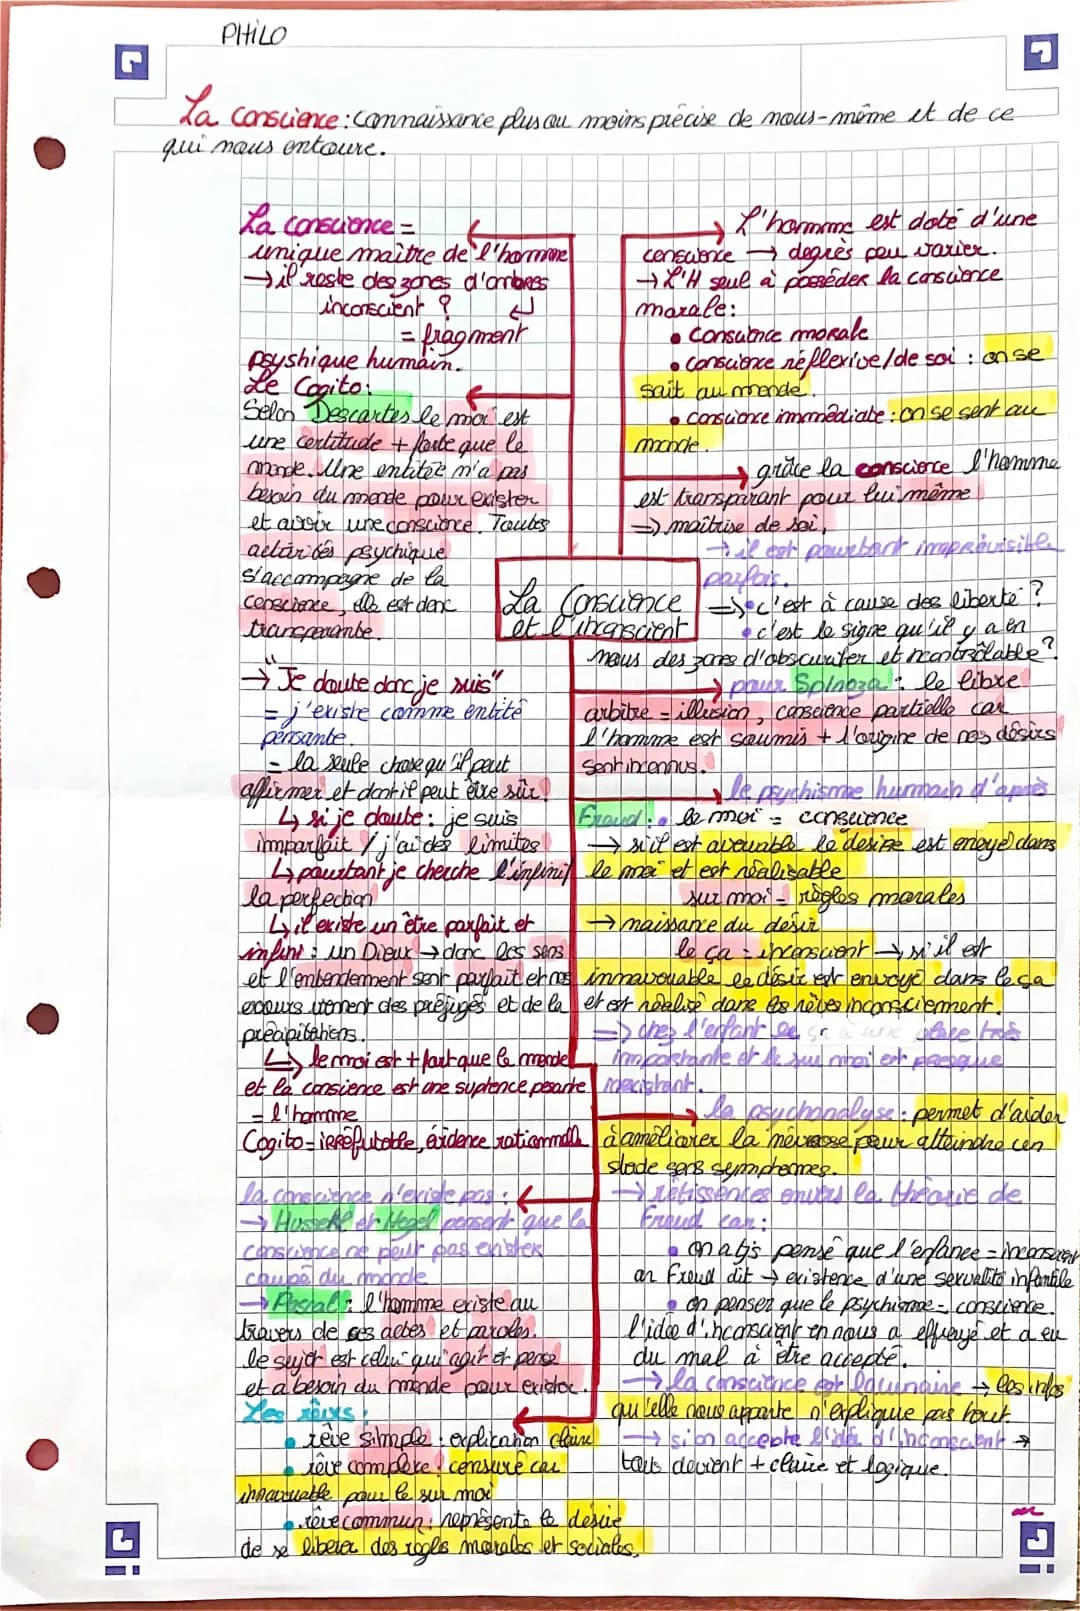 PHILO
La conscience : connaissance plus ou moins précise de nous-même et de ce
qui nous entoure.
La conscience =
unique maître de l'homme
→ il reste des zones d'ombres
inconscient ?
= fragment
psyshique humain.
Le Cogito :
Selon Descartes le moi est
une certitude + forte que le
monde. Une entitée n'a pas
besoin du monde pour exister
et avoir une conscience. Toutes
activités psychique
s'accompagne de la
conscience, elle est donc
transparante.
→ "Je doute donc je suis"
= j'existe comme entité
pensante.
= la seule chose qu'il peut
affirmer et dont il peut être sûr.
↳ si je doute : je suis
imparfait / j'ai des limites
↳ pourtant je cherche l'infini/
la perfection
↳ il existe un être parfait et
infini : un Dieux → donc les sens
et l'entendement sont parfait et nos
erreurs viennent des préjugés et de la
précipitations.
↳ le moi est + fort que le monde
et la consience est une pesante
= l'homme
Cogito = irréfutable, évidence rationnelle
la conscience n'existe pas :
→ Husserl et Hegel pensent que la
conscience ne peut pas exister
coupé du monde
→ Pascal : l'homme existe au
travers de ses actes et paroles.
le sujet est celui qui agit et pense
et a besoin du monde pour exister.
Les rêves :
• rêve simple : explication claire
• rêve complexe : censuré car
innavouable pour le sur moi
• rêve commun : représente le désire
de se libérer des règles morales et sociales.
La Conscience
et l'inconscient
L'homme est doté d'une
conscience → degrès peu varier.
→ L'H seul à posséder la conscience
morale :
• Conscience morale
• conscience réflexive/de soi : on se
sait au monde.
• conscience immédiate : on se sent au
monde.
grâce la conscience l'homme
est transparant pour lui même
⇒ maîtrise de soi,
→ il est pourtant imprévisible
parfois.
⇒ • c'est à cause des liberté ?
• c'est le signe qu'il y a en
nous des zones d'obscuriter et ncontrôlable ?
pour Spinoza : le libre
arbitre = illusion, conscience partielle car
l'homme est soumis + l'origine de nos désirs
sont inconnus.
le psychisme humain d'après
Freud : • le moi = conscience
→ si il est avouable le désire est envoyé dans
le moi et est réalisable
sur moi = règles morales
→ naissance du désir
le ça = inconscient → si il est
innavouable le désir est envoyé dans le ça
et est réalisé dans les rêves inconsciemment.
⇒ chez l'enfant le ça a une place très
importante et le sur moi est presque
inexistant.
la psychanalyse : permet d'aider
à améliorer la névrose pour atteindre un
stade sans symptomes.
→ rétissences envers la théorie de
Freud car :
• on a tjs pensé que l'enfance = inconscient
or Freud dit → existence d'une sexualité infantile
• on penser que le psychisme = conscience.
l'idée d'inconscient en nous a effrayé et a eu
du mal à être accepté.
→ la conscience est lacunaire → les infos
qu'elle nous apporte n'explique pas tout.
→ si on accepte l'idée d'inconscient →
tout devient + claire et logique.